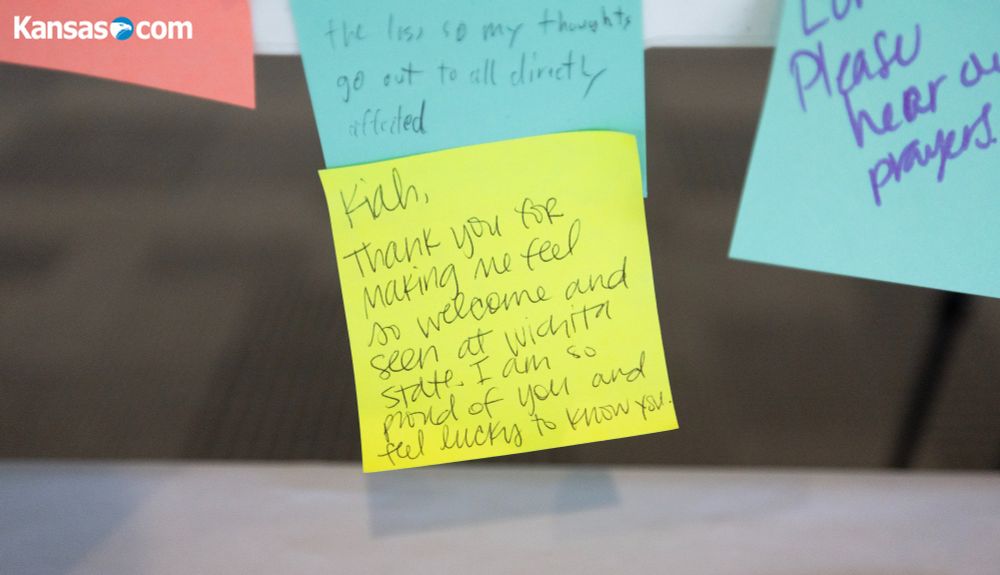 Kansas.com
the loss so my thoughts
go out to all directly
affected
Kiah,
Thank you for
making me feel
so welcome and
seen at wichita
state. I am so
proud of you and
feel lucky to know you.
Please
hear
prayers.